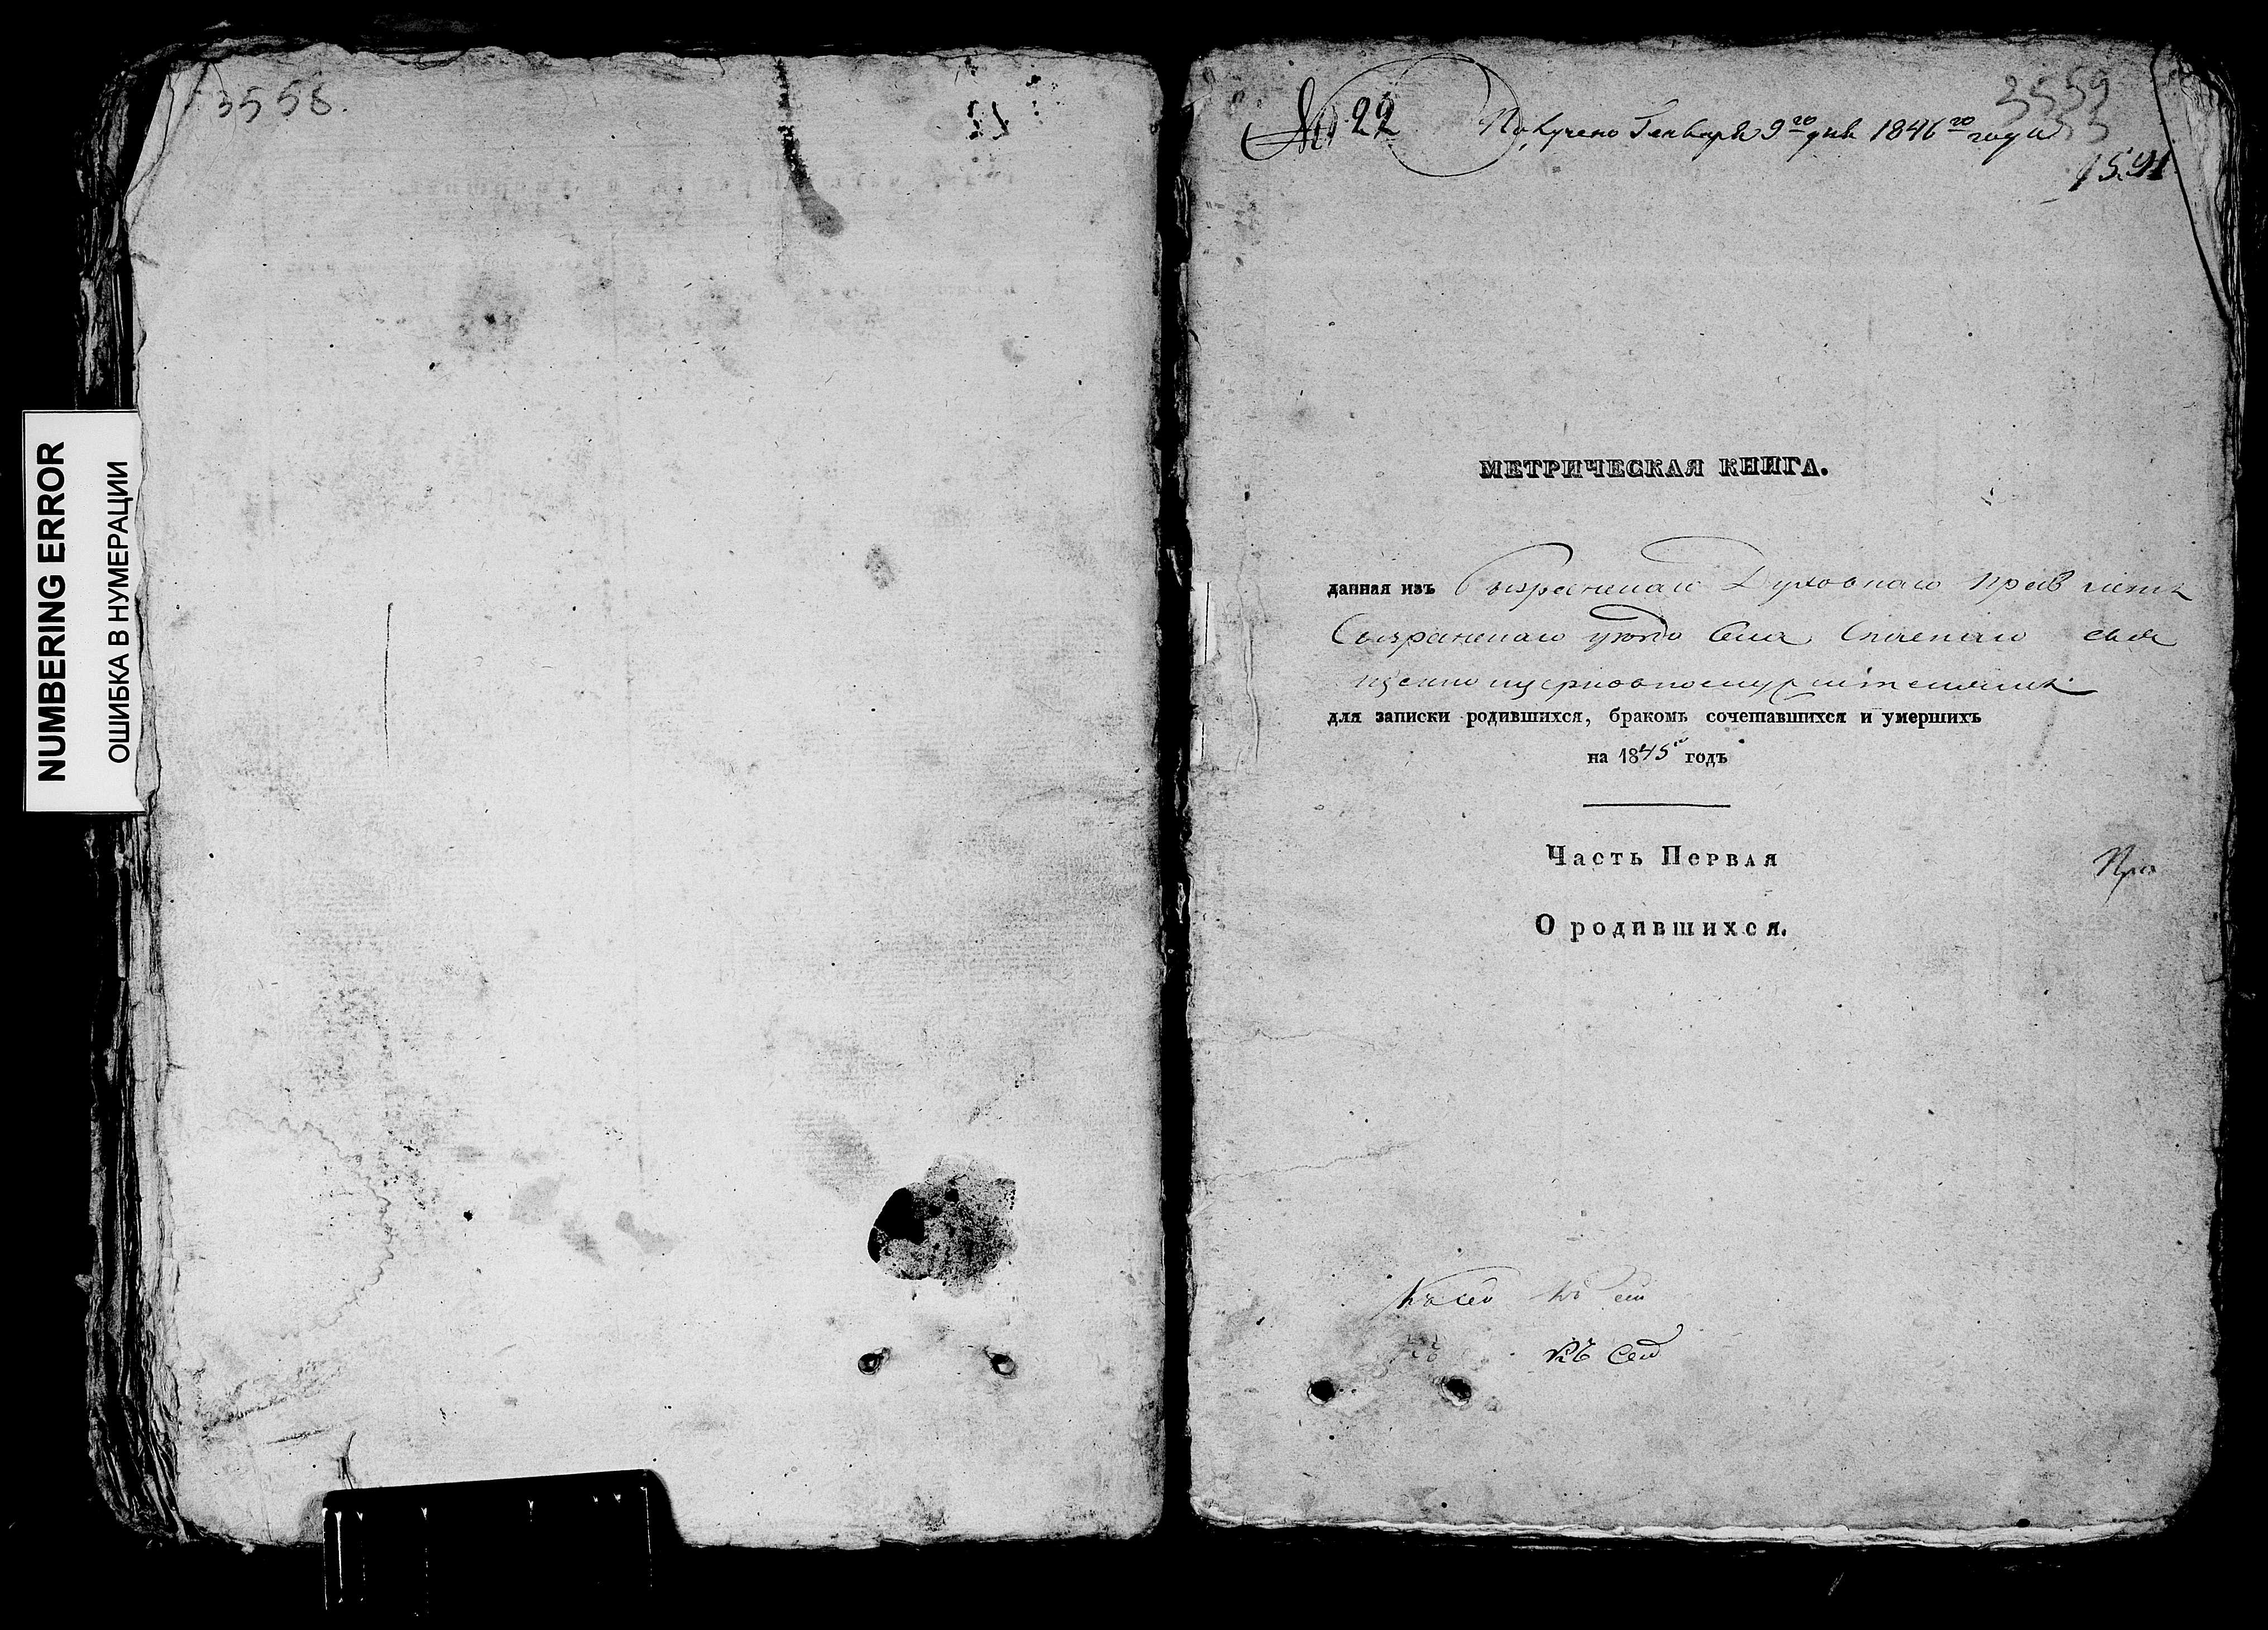 NUMBERING ERROR
ОШИБКА В НУМЕРАЦИИ
3558.
№ 22 Получено Генваря 9го дня 1846го года
3559
1591
МЕТРИЧЕСКАЯ КНИГА.
данная изъ Сызранскаго Духовнаго Правленія
Сызранскаго уѣзда села Спаскаго свя
щенно церковнослужителямъ
для записки родившихся, бракомъ сочетавшихся и умершихъ
на 1845й годъ
Часть Первая
Пра
О родившихся.
Къ сей
Къ